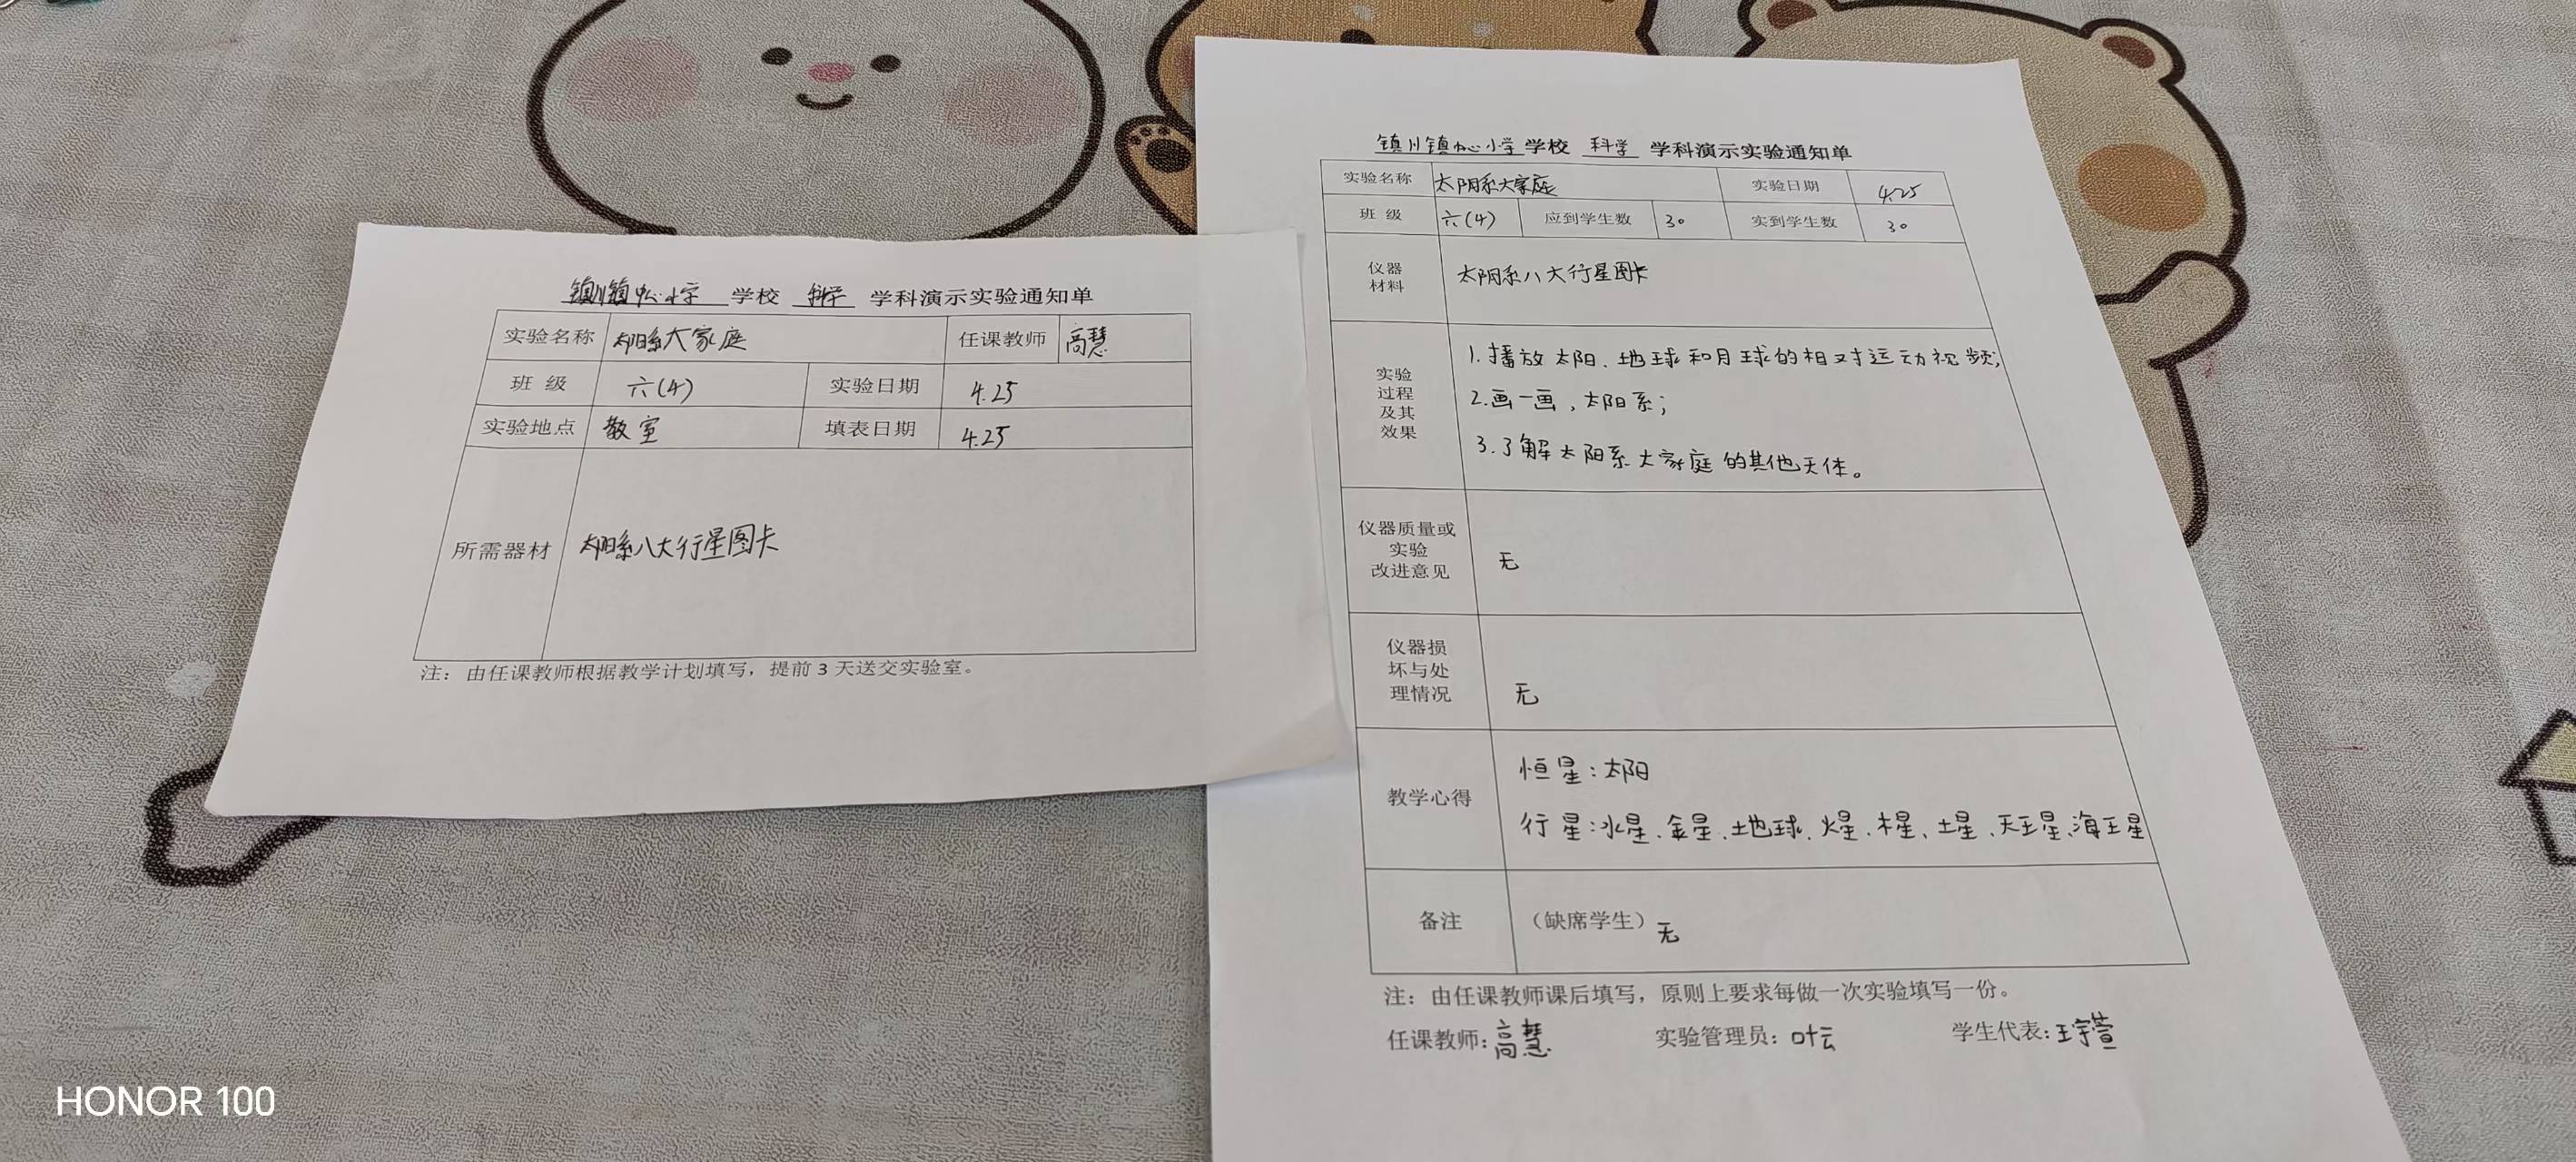 镇川镇中心小学 学校 科学 学科演示实验通知单
实验名称 太阳系大家庭 任课教师 高慧
班 级 六(4) 实验日期 4.25
实验地点 教室 填表日期 4.25
所需器材 太阳系八大行星图卡
注：由任课教师根据教学计划填写，提前 3 天送交实验室。
镇川镇中心小学学校 科学 学科演示实验通知单
实验名称 太阳系大家庭 实验日期 4.25
班 级 六(4) 应到学生数 30 实到学生数 30
仪器
材料
太阳系八大行星图卡
实验
过程
及其
效果
1.播放太阳、地球和月球的相对运动视频;
2.画一画,太阳系;
3.了解太阳系大家庭的其他天体。
仪器质量或
实验
改进意见
无
仪器损
坏与处
理情况
无
教学心得
恒星:太阳
行星:水星、金星、地球、火星、木星、土星、天王星、海王星
备注 （缺席学生）无
注：由任课教师课后填写，原则上要求每做一次实验填写一份。
任课教师:高慧 实验管理员:叶云 学生代表:王宇萱
HONOR 100